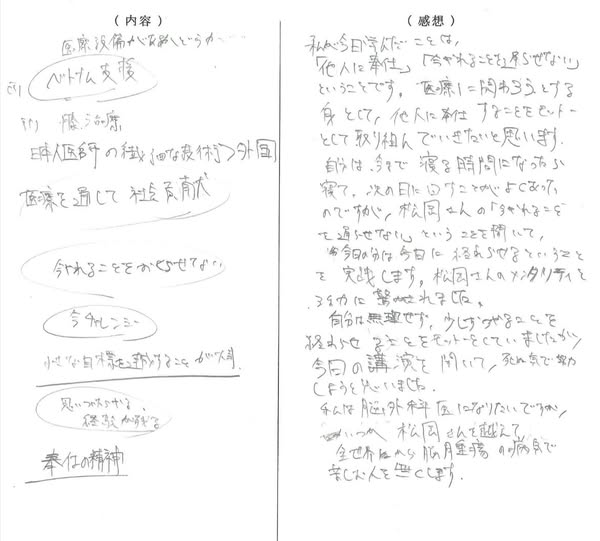 （ 内容 ）
医療設備が
ベトナム支援
治療
日本人医師の繊細な技術 外国
医療を通して社会貢献
今やれることをおくらせない
今チャレンジ
小さな目標を達成することが大事
思いついたらやる、
経験ができる
奉仕の精神
（ 感想 ）
私が今日学んだことは、
「他人に奉仕」「今やれることを遅らせない」
ということです。医療に関わろうとする
身として、他人に奉仕することをモットー
として取り組んでいきたいと思います。
自分は、今まで寝る時間になったら
寝て、次の日に回すことがよくあった
のですが、松岡さんの「今やれること
を遅らせない」ということを聞いて、
今日の分は今日に終わらせるということ
を実践します。松岡さんのメンタリティと
努力に驚かされました。
自分は無理せず、少しずつやることを
終わらせることをモットーとしていましたが、
今日の講演を聞いて、死ぬ気で努力
しようと思いました。
私は脳外科医になりたいですが、
いつか松岡さんを越えて
全世界から脳腫瘍の病気で
苦しむ人を無くします。